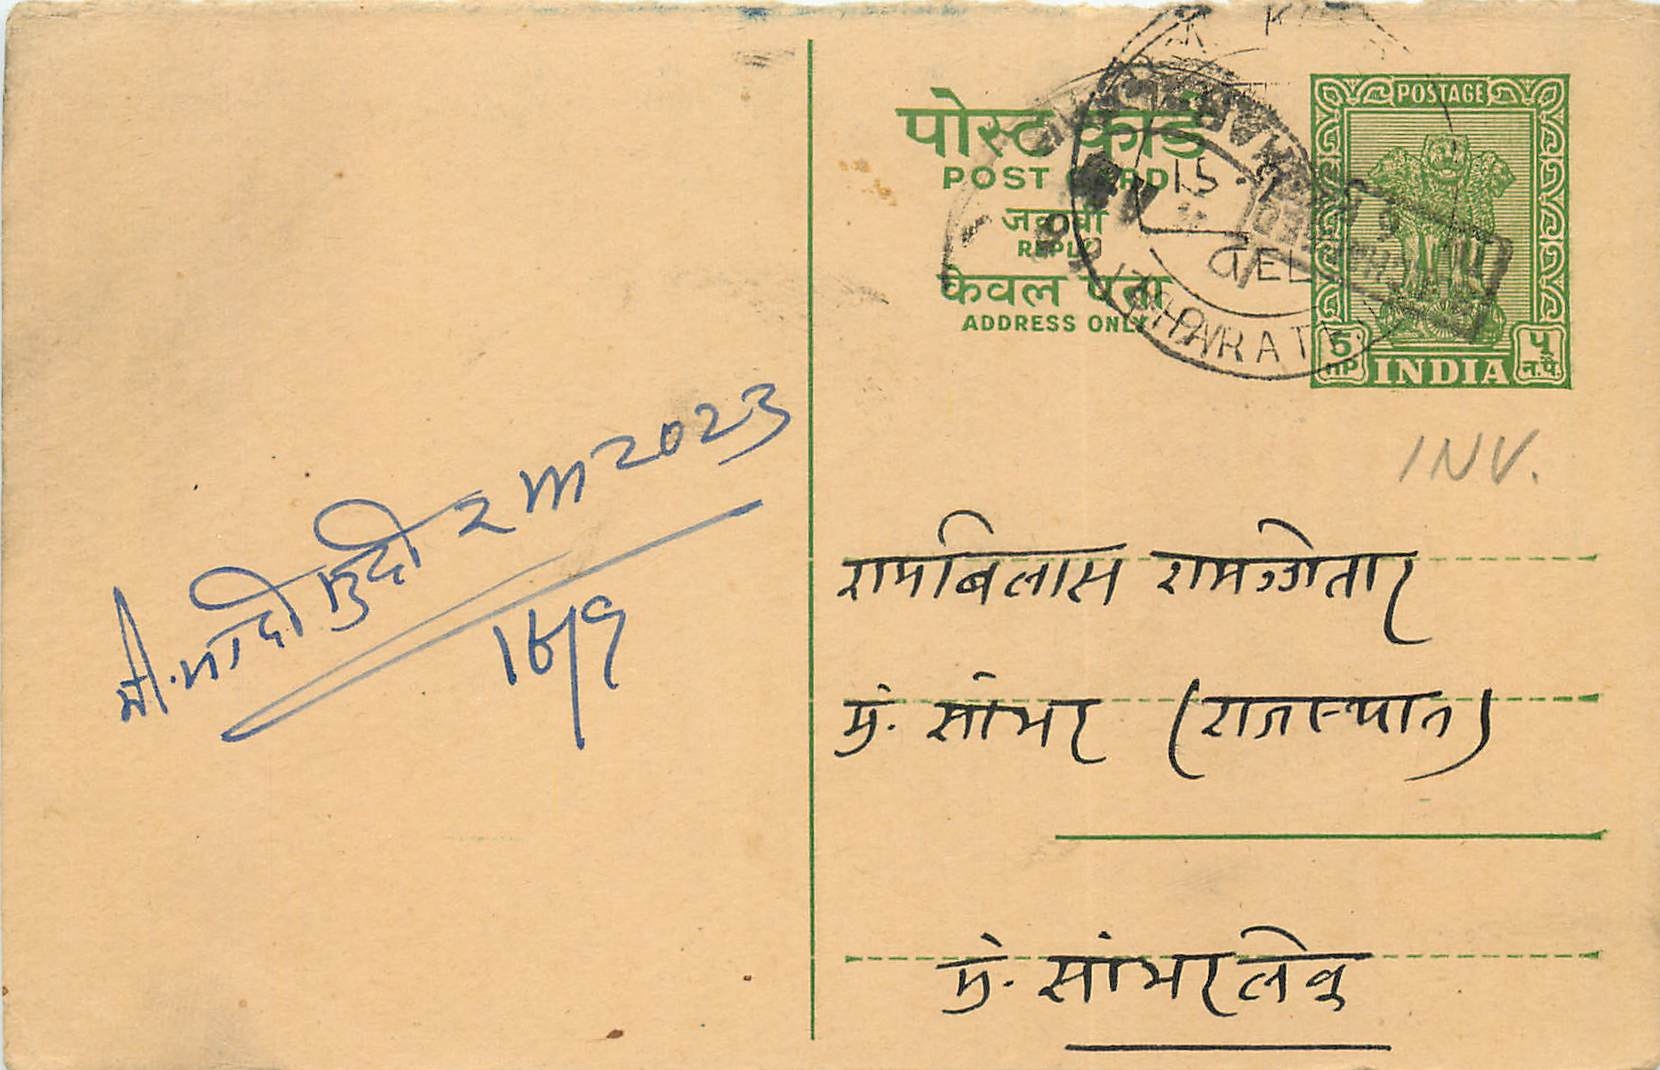 पोस्ट कार्ड
POST CARD
जवाबी
REPLY
केवल पता
ADDRESS ONLY
POSTAGE
5 np INDIA ५ न.पै.
15
BHARAT
INV.
रामबिलास रामओतार
मु. सांभर (राजस्थान)
मु. सांभरलेक
सुदी २ 2023
16/9